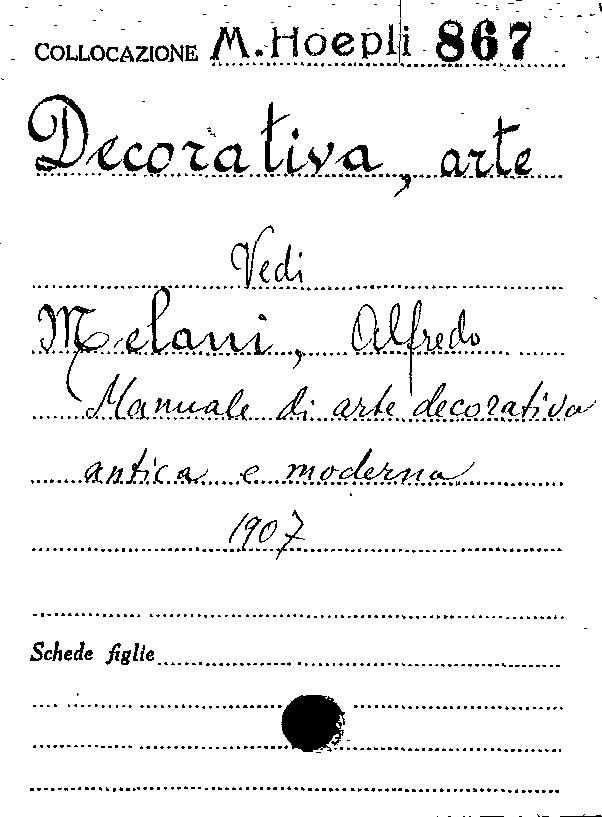 COLLOCAZIONE M.Hoepli 867
Decorativa, arte
Vedi
Melani, Alfredo
Manuale di arte decorativa
antica e moderna
1907
Schede figlie